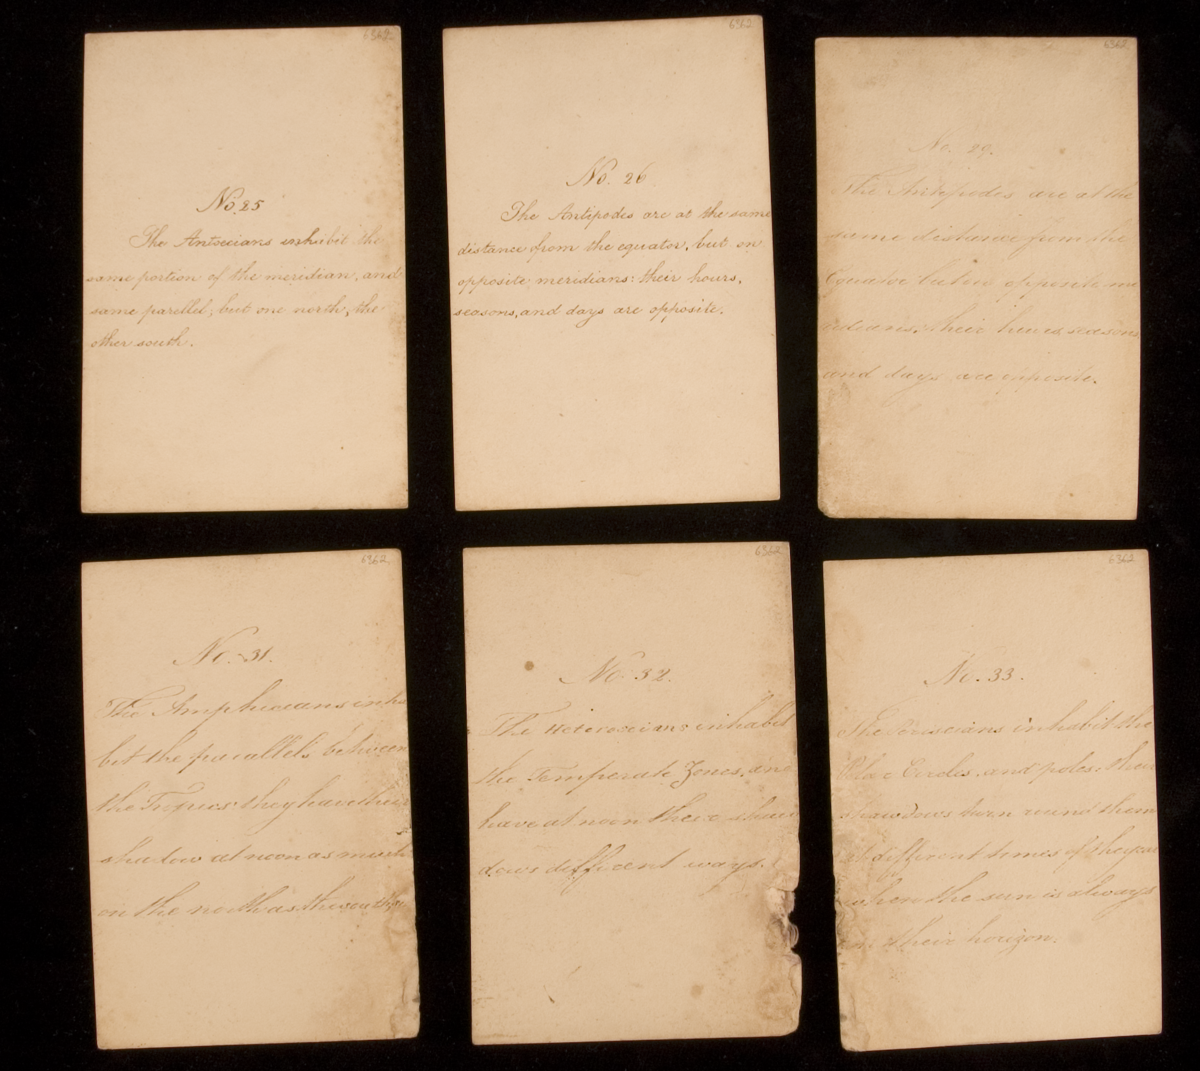 6362
No. 25
The Antoecians inhabit the
same portion of the meridian, and
same parellel, but one north, the
other south.
6362
No. 26
The Antipodes are at the same
distance from the equator, but on
opposite meridians: their hours,
seasons, and days are opposite.
6362
No. 29.
The Antipodes are at the
same distance from the
Equator but on opposite me
ridians. their hours, seasons
and days are opposite.
6362
No. 31.
The Amphiscians inha
bit the parallels between
the Tropics: they have their
shadow at noon as much
on the north as the south
6362
No 32.
The Heteroscians inhabit
the Temperate Zones, and
have at noon their shaw
dows different ways.
6362
No. 33.
The Periscians inhabit the
Polar Circles, and poles: their
shawdows turn round them
at different times of the year
when the sun is always
on their horizon.